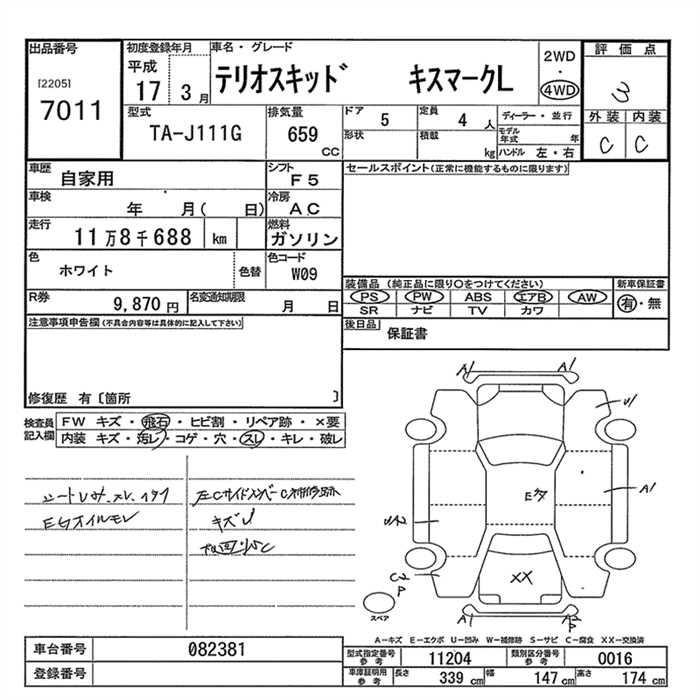 出品番号
[2205]
7011
初度登録年月
平成
17 3月
車名・グレード
テリオスキッド キスマークL
2WD
・
4WD
評価点
3
外装 内装
C C
型式
TA-J111G
排気量
659
CC
ドア 5
定員 4人
形状
積載 kg
ディーラー・並行
モデル年式 年
ハンドル 左・右
車歴
自家用
シフト
F5
セールスポイント(正常に機能するものに限ります)
車検
年 月( 日)
冷房
AC
走行
11万8千688 km
燃料
ガソリン
色
ホワイト
色替
色コード
W09
装備品 (純正品に限り○をつけてください)
新車保証書
PS PW ABS エアB AW
SR ナビ TV カワ
有・無
R券
9,870円
名変通知期限
月 日
後日品
保証書
注意事項申告欄(不具合内容等は具体的に記入して下さい)
修復歴 有〔箇所 〕
検査員記入欄
FW キズ・飛石・ヒビ割・リペア跡・×要
内装 キズ・汚レ・コゲ・穴・スレ・キレ・破レ
キズ
A1 A1
U1
A1
XX
A1
スペア
A-キズ E-エクボ U-凹み W-補修跡 S-サビ C-腐食 XX-交換済
車台番号
082381
登録番号
型式指定番号
参考
11204
類別区分番号
参考
0016
車庫証明用
参考
長さ 339cm
幅 147cm
高さ 174cm